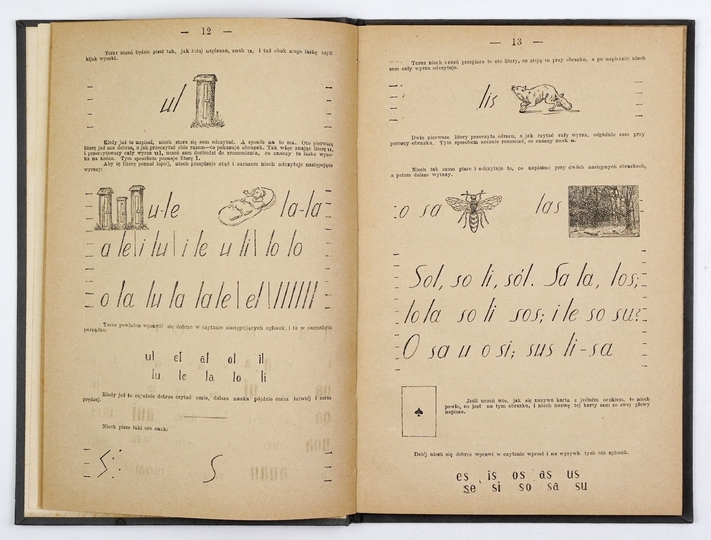 — 12 —
Teraz uczeń będzie pisał tak, jak tutaj napisane, znak u, i tuż obok niego laskę czyli
kijek wysoki.
ul
Kiedy już to napisał, niech stara się sam odczytać. A sposób na to ma. Oto pierwszą
literę już zna dobrze, a jak przeczytać obie razem—to pokazuje obrazek. Tak więc znając literę u,
i przeczytawszy cały wyraz ul, uczeń sam dochodzi do zrozumienia, co znaczy ta laska wyso-
ka na końcu. Tym sposobem poznaje literę l.
Aby tę literę poznał lepiej, niech przepisuje stąd i zarazem niech odczytuje następujące
wyrazy:
u-le la-la
a le\i lu\ i le u li\ lo lo
o la lu la la le\ el\
Teraz powinien wprawić się dobrze w czytanie następujących zgłosek, i to w rozmaitym
porządku.
ul el al ol il
lu le la lo li
Kiedy już te zgłoski dobrze czytać umie, dalsza nauka pójdzie coraz łatwiej i coraz
prędzej.
Niech pisze taki oto znak:
S
— 13 —
Teraz niech uczeń przepisze te oto litery, co stoją tu przy obrazku, a po napisaniu niech
sam cały wyraz odczytuje.
lis
Dwie pierwsze litery przeczyta odrazu, a jak czytać cały wyraz, odgadnie sam przy
pomocy obrazka. Tym sposobem zacznie rozumieć, co znaczy znak s.
Niech tak samo pisze i odczytuje to, co napisane przy dwóch następnych obrazkach,
a potem dalsze wyrazy.
o sa las
Sol, so li, sól. Sa la, los;
lo la so li sos; i le so su?
O sa u o si; sus li-sa
Jeśli uczeń wie, jak się nazywa karta z jednem oczkiem, to niech
powie, co jest na tym obrazku, i niech nazwę tej karty sam ze swej głowy
napisze.
♠
Dalej niech się dobrze wprawi w czytanie wprost i na wyrywki tych oto zgłosek.
es is os as us
se si so sa su